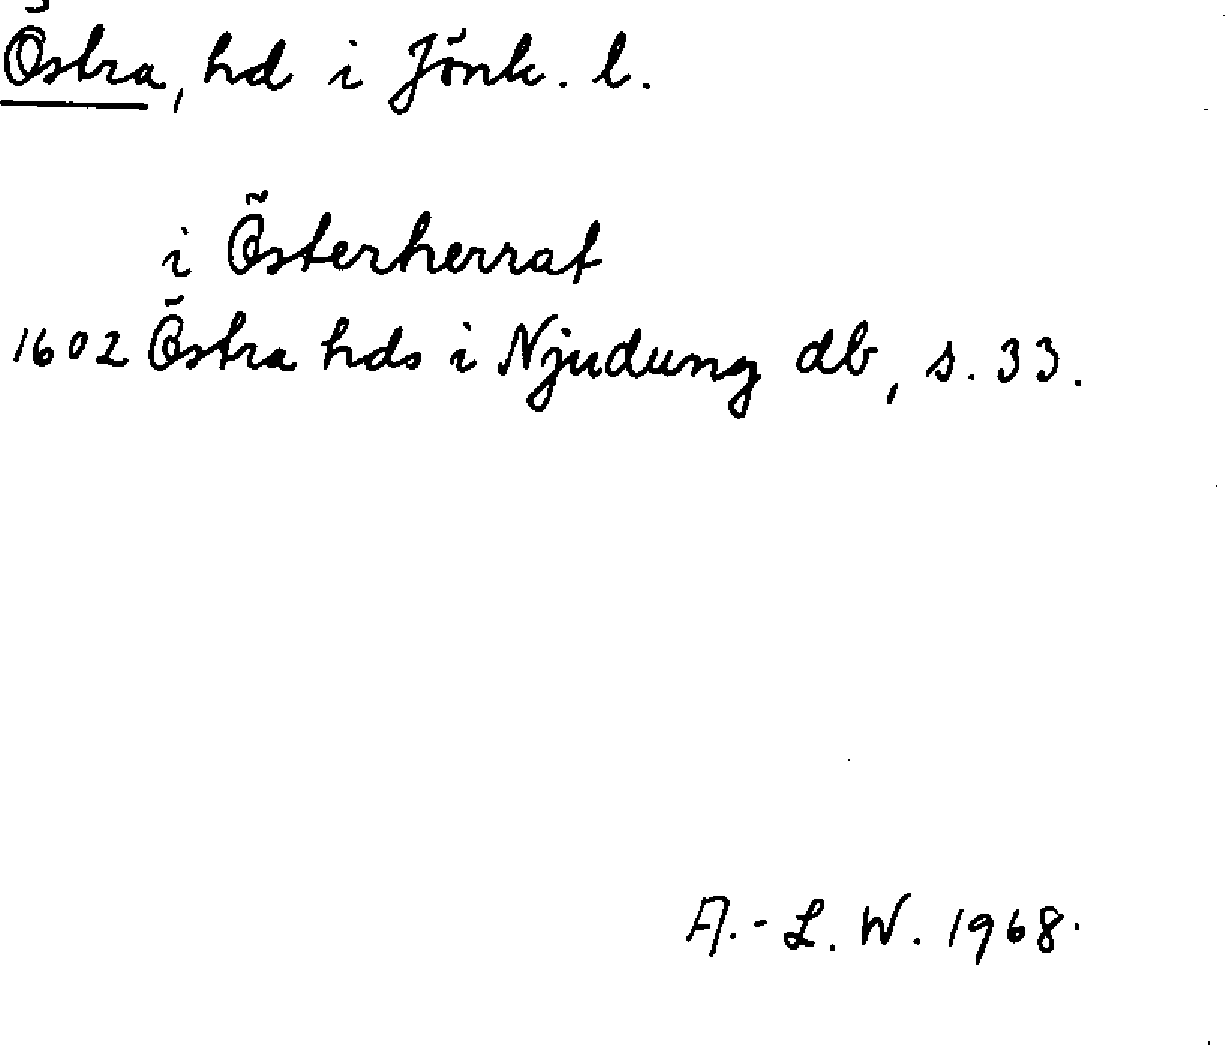 Östra, hd i Jönk. l.
i Österherrat
1602 Östra hds i Njudung db, s. 33.
A.-L. W. 1968.